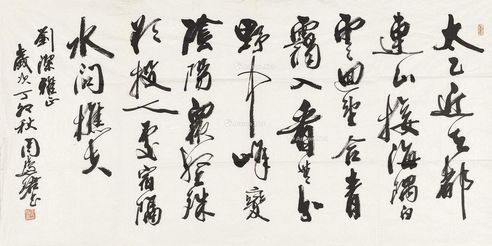 太乙近天都
連山接海隅白
雲回望合青
靄入看無分
野中峰變
陰陽眾壑殊
欲投人處宿隔
水問樵夫
劉傑雅正
歲次丁卯秋周